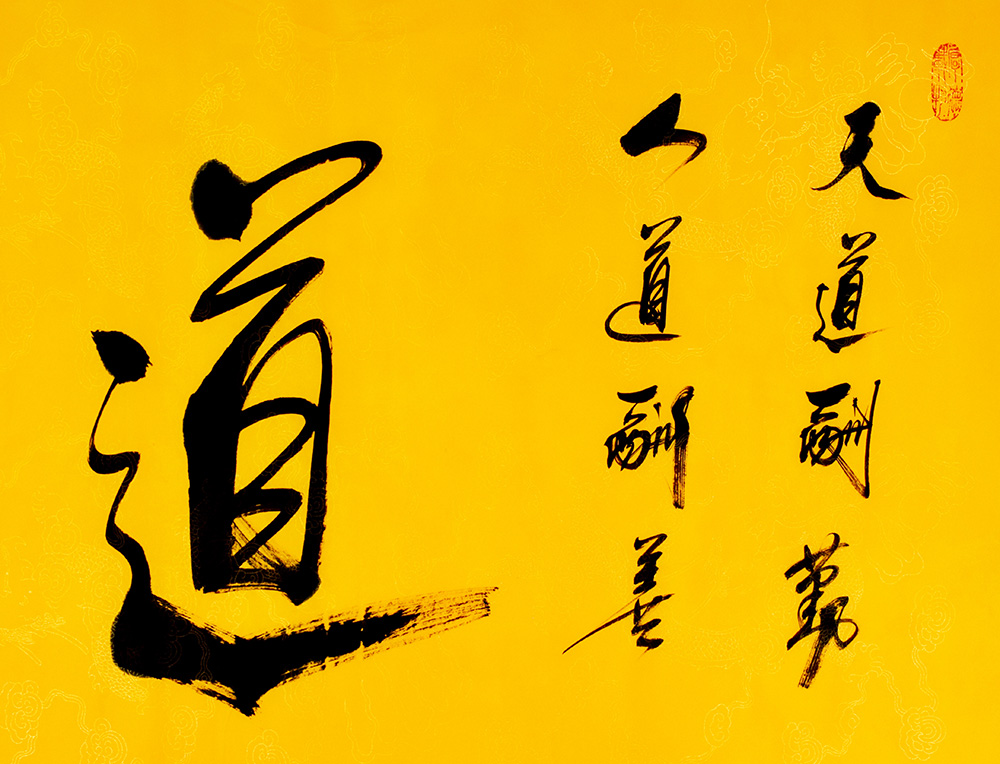 天道酬勤
人道酬善
道